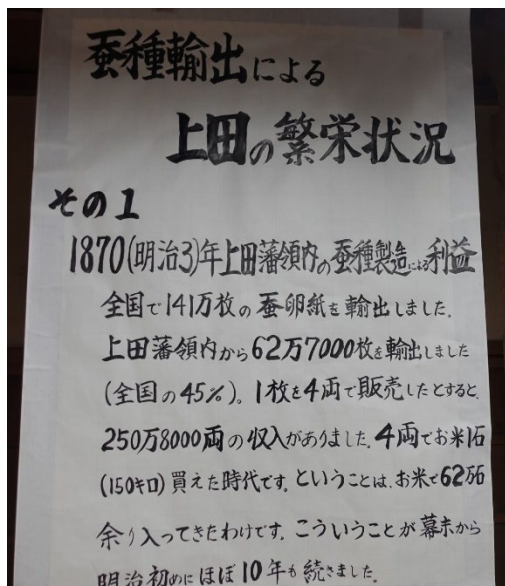 蚕種輸出による
上田の繁栄状況
その1
1870(明治3)年上田藩領内の蚕種製造による利益
全国で141万枚の蚕卵紙を輸出しました.
上田藩領内から62万7000枚を輸出しました
(全国の45%)。1枚を4両で販売したとすると,
250万8000両の収入がありました.4両でお米1石
(150キロ)買えた時代です.ということは、お米で62万石
余り入ってきたわけです.こういうことが幕末から
明治初めにほぼ10年も続きました.